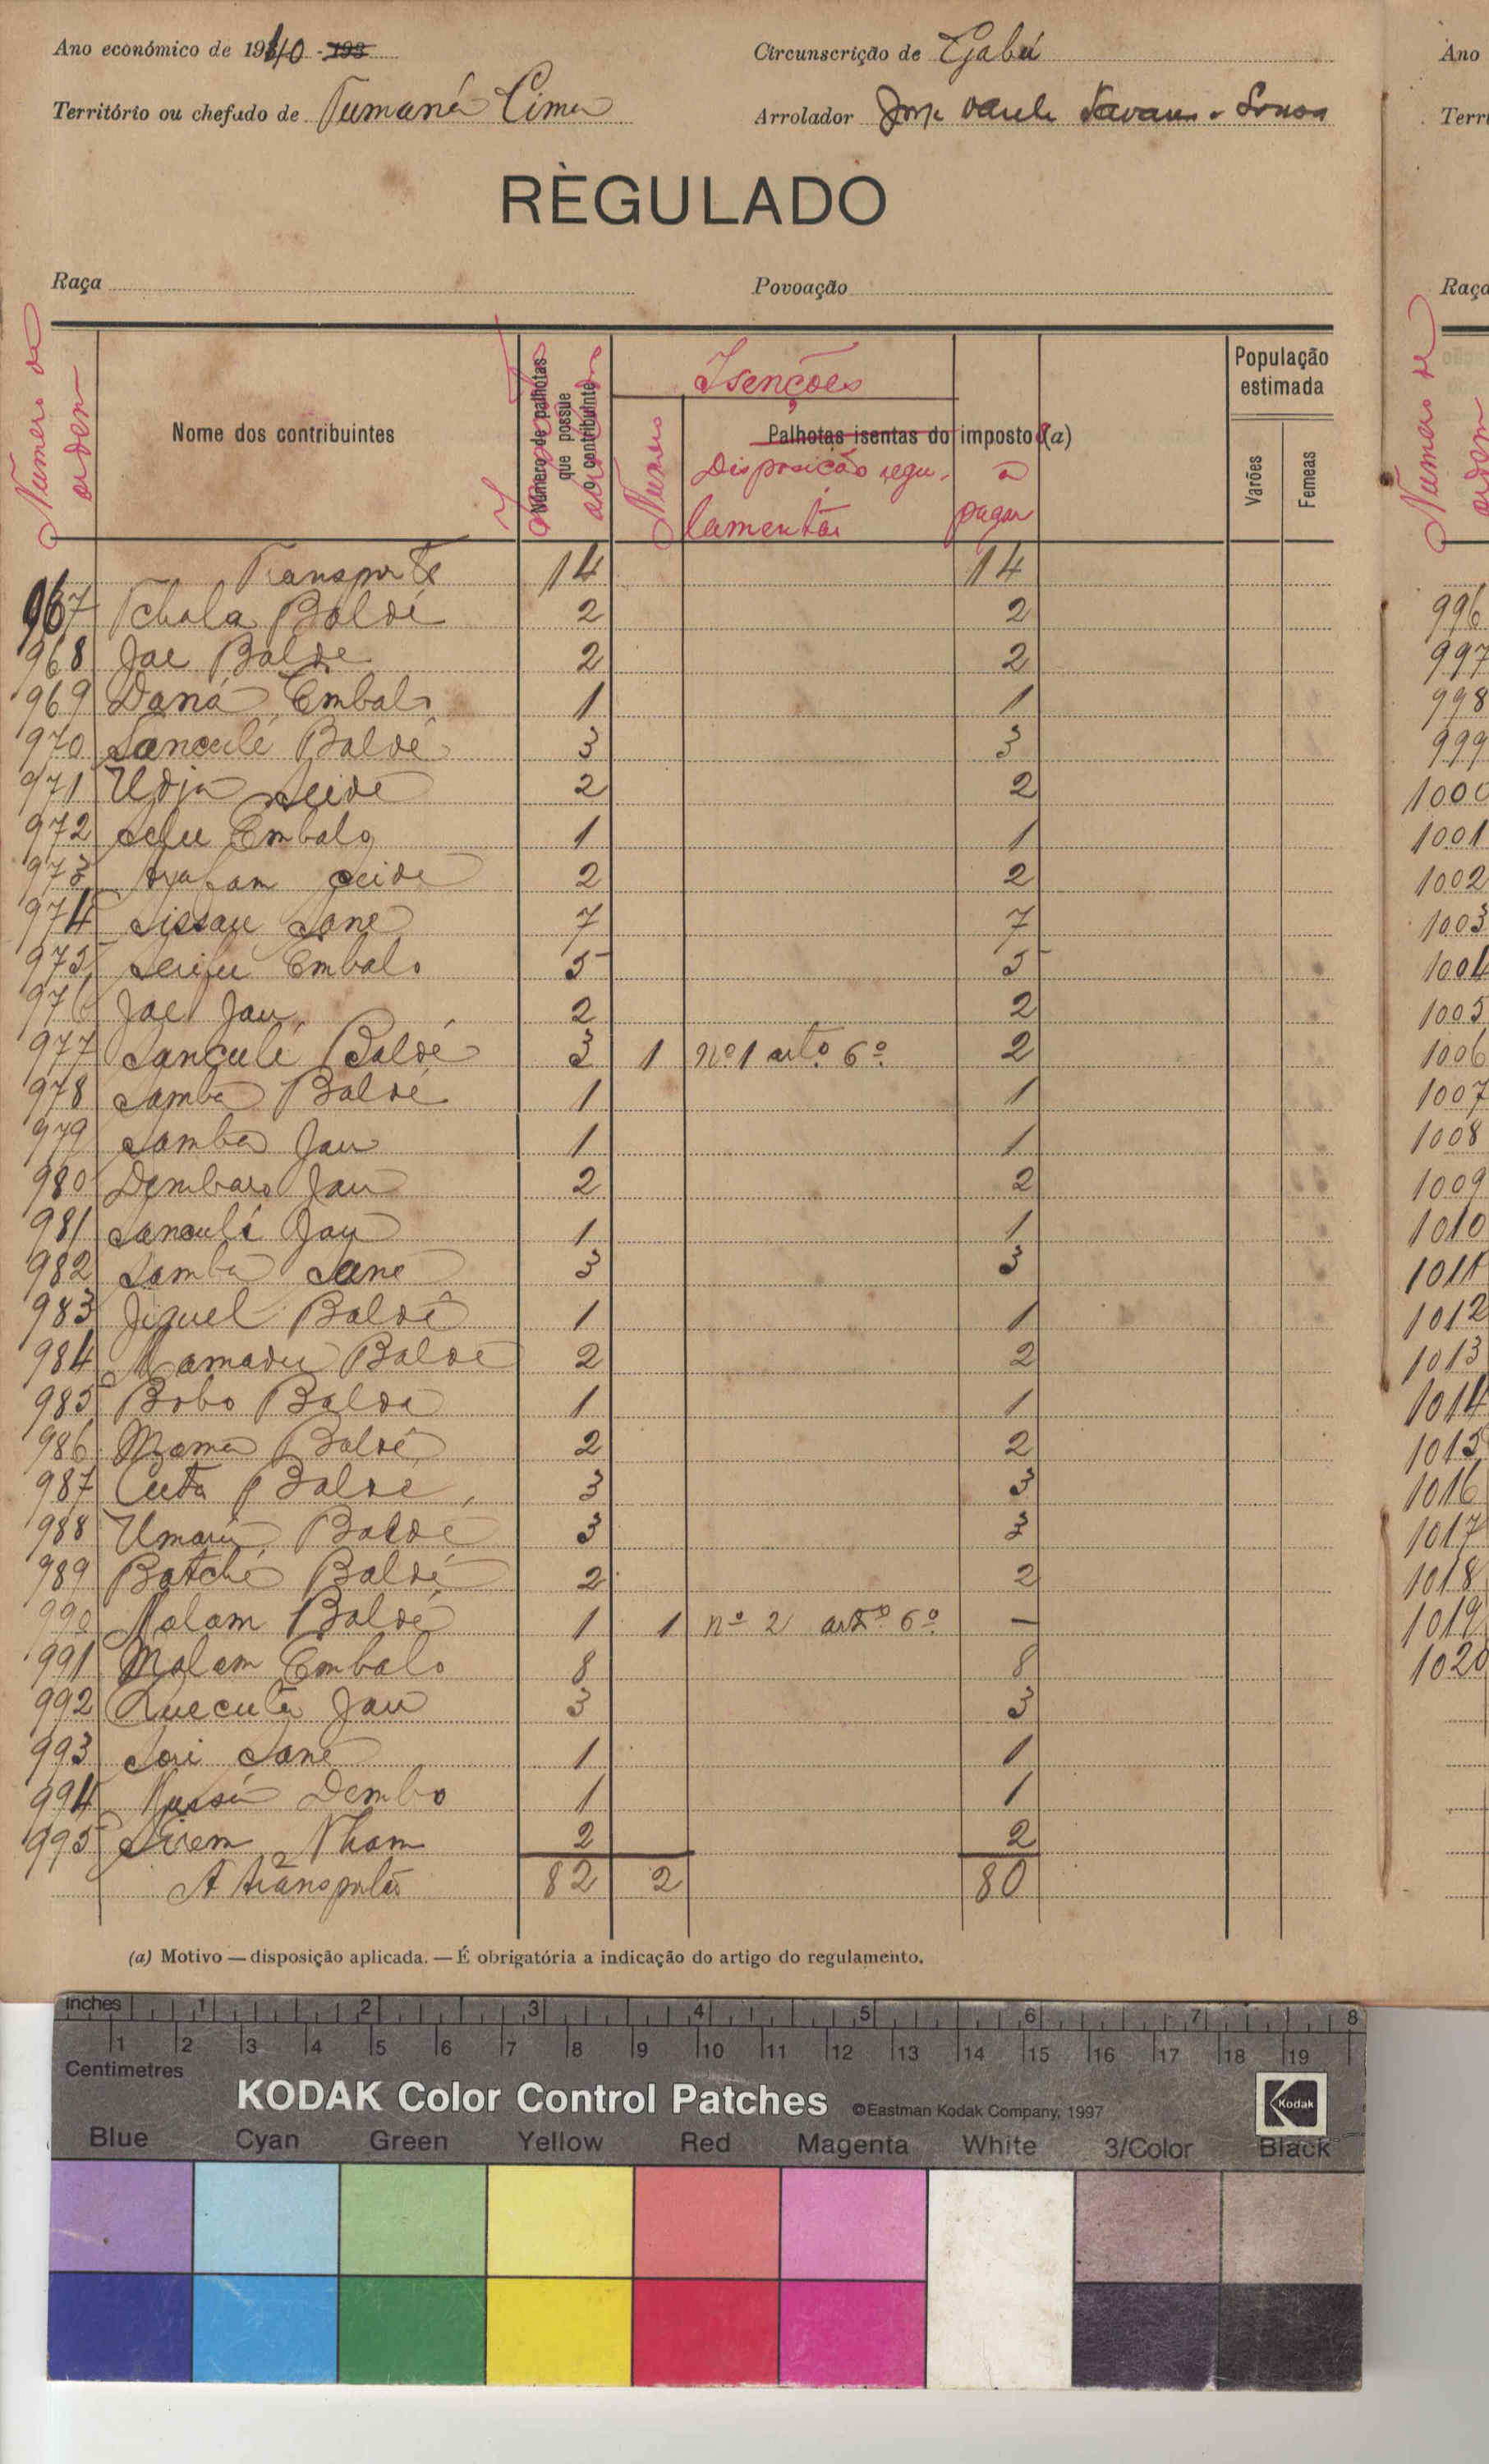 Ano económico de 1940 - 193
Circunscrição de Gabú
Ano
Território ou chefado de Tumaná Cima
Arrolador
Terri
RÈGULADO
Raça
Povoação
Raça
Numero de ordem
Nome dos contribuintes
Número de palhotas que possue o contribuinte
Isenções
Numero
Palhotas isentas do imposto (a)
Disposição regulamentar
a pagar
População estimada
Varões
Femeas
Numero de ordem
Transporte 14 14
967 Tchala Baldé 2 2 996
968 Jae Balde 2 2 997
969 Daná Embaló 1 1 998
970 Sanculé Baldé 3 3 999
971 Udja Seide 2 2 1000
972 Selu Embalo 1 1 1001
973 Seide 2 2 1002
974 Sissau Sane 7 7 1003
975 Embalo 5 5 1004
976 Jae Jau 2 2 1005
977 Sanculé Baldé 3 1 nº 1 artº 6º 2 1006
978 Samba Baldé 1 1 1007
979 Samba Jau 1 1 1008
980 Dembaro Jau 2 2 1009
981 Sanculé Jau 1 1 1010
982 Samba Sane 3 3 1011
983 Jiguel Baldé 1 1 1012
984 Mamadu Baldé 2 2 1013
985 Bobo Balde 1 1 1014
986 Mama Baldé 2 2 1015
987 Cuta Balde 3 3 1016
988 Umaru Balde 3 3 1017
989 Batche Baldé 2 2 1018
990 Malam Baldé 1 1 nº 2 artº 6º — 1019
991 Malam Embalo 8 8 1020
992 Quecuta Jau 3 3
993 Sori Sane 1 1
994 Dembo 1 1
995 Nham 2 2
A transportar 82 2 80
(a) Motivo — disposição aplicada. — É obrigatória a indicação do artigo do regulamento.
inches 1 2 3 4 5 6 7 8
1 2 3 4 5 6 7 8 9 10 11 12 13 14 15 16 17 18 19
Centimetres
KODAK Color Control Patches ©Eastman Kodak Company, 1997 Kodak
Blue Cyan Green Yellow Red Magenta White 3/Color Black